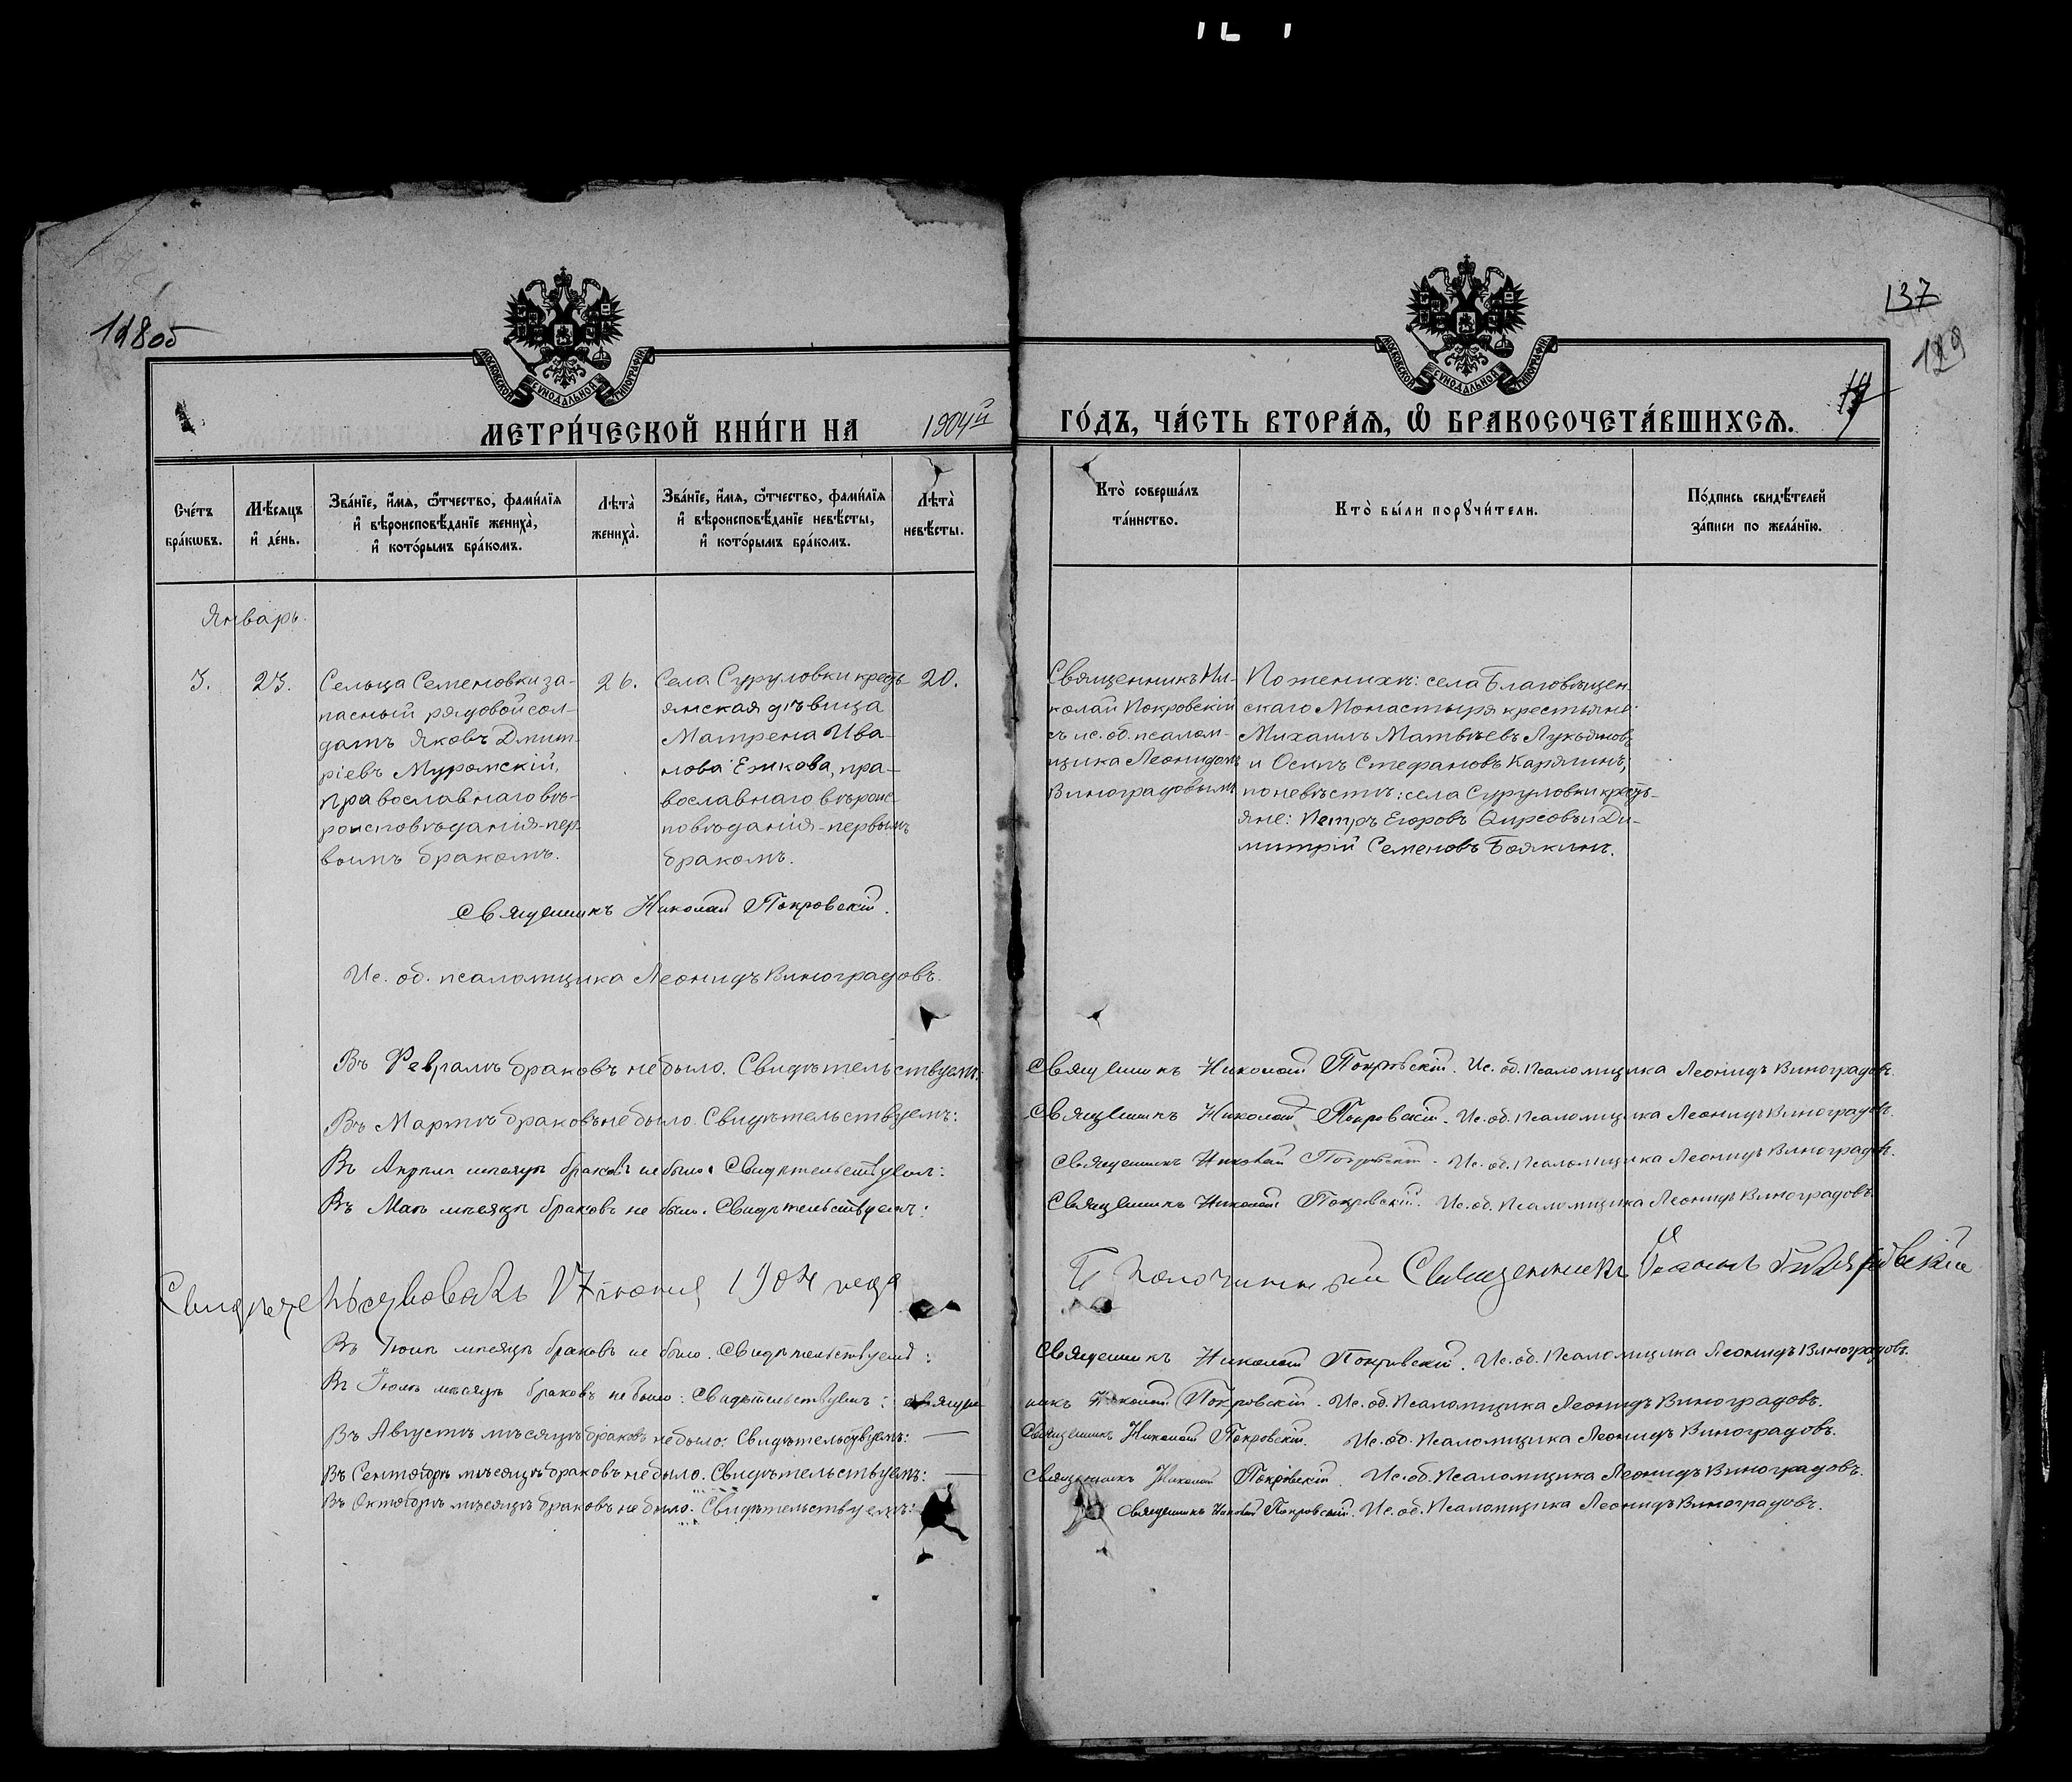 128об
137
129
МОСКОВСКОЙ СѴНОДАЛЬНОЙ ТИПОГРАФІИ
МОСКОВСКОЙ СѴНОДАЛЬНОЙ ТИПОГРАФІИ
МЕТРИ́ЧЕСКОЙ КНИ́ГИ НА 1904й ГО́ДЪ, ЧА́СТЬ ВТОРА́Ѧ, Ѽ БРАКОСОЧЕТА́ВШИХСѦ.
Сче́тъ бра́кѡвъ.
Мѣ́сяцъ и҆ де́нь.
Зва́нїе, и҆́мѧ, ѻ҆́тчество, фами́лїѧ и҆ вѣроисповѣ́данїе жениха̀, и҆ кото́рымъ бра́комъ.
Лѣта̀ жениха̀.
Зва́нїе, и҆́мѧ, ѻ҆́тчество, фами́лїѧ и҆ вѣроисповѣ́данїе невѣ́сты, и҆ кото́рымъ бра́комъ.
Лѣта̀ невѣ́сты.
Кто̀ соверша́лъ та́инство.
Кто̀ бы́ли порꙋчи́тели.
По́дпись свидѣ́телей за́писи по жела́нїю.
Январь.
3.
23.
Сельца Семеновки за-
пасный рядовой сол-
датъ Яковъ Дмит-
ріевъ Муромскій,
православнаго вѣ-
роисповѣданія-пер-
вымъ бракомъ.
26.
Села Суруловки кресть-
янская дѣвица
Матрена Ива-
нова Ежкова, пра-
вославнаго вѣроис-
повѣданія-первымъ
бракомъ.
20.
Священникъ Ни-
колай Покровскій
съ ис. об. псалом-
щика Леонидомъ
Виноградовымъ
По женихѣ: села Благовѣщен-
скаго Монастыря крестьяне:
Михаилъ Матвѣевъ Лукьяновъ
и Осипъ Стефановъ Карякинъ;
по невѣстѣ: села Суруловки кресть-
яне: Петръ Егоровъ Ѳирсовъ и Ди-
митрій Семеновъ Боякинъ.
Священникъ Николай Покровскій.
Ис. об. псаломщика Леонидъ Виноградовъ.
Въ Февралѣ браковъ не было. Свидѣтельствуемъ: Священникъ Николай Покровскій. Ис. об. Псаломщика Леонидъ Виноградовъ.
Въ Мартѣ браковъ не было. Свидѣтельствуемъ: Священникъ Николай Покровскій. Ис. об. Псаломщика Леонидъ Виноградовъ.
Въ Апрѣлѣ мѣсяцѣ браковъ не было. Свидѣтельствуемъ: Священникъ Николай Покровскій. Ис. об. Псаломщика Леонидъ Виноградовъ.
Въ Маѣ мѣсяцѣ браковъ не было. Свидѣтельствуемъ: Священникъ Николай Покровскій. Ис. об. Псаломщика Леонидъ Виноградовъ.
Свидѣтельствовалъ 17 іюня 1904 года Благочинный Священникъ
Въ Іюнѣ мѣсяцѣ браковъ не было. Свидѣтельствуемъ: Священникъ Николай Покровскій. Ис. об. Псаломщика Леонидъ Виноградовъ.
Въ Іюлѣ мѣсяцѣ браковъ не было: Свидѣтельствуемъ: Священникъ Николай Покровскій. Ис. об. Псаломщика Леонидъ Виноградовъ.
Въ Августѣ мѣсяцѣ браковъ не было: Свидѣтельствуемъ: — Священникъ Николай Покровскій. Ис. об. Псаломщика Леонидъ Виноградовъ.
Въ Сентябрѣ мѣсяцѣ браковъ не было. Свидѣтельствуемъ: — Священникъ Николай Покровскій. Ис. об. Псаломщика Леонидъ Виноградовъ.
Въ Октябрѣ мѣсяцѣ браковъ не было. Свидѣтельствуемъ: Священникъ Николай Покровскій. Ис. об. Псаломщика Леонидъ Виноградовъ.